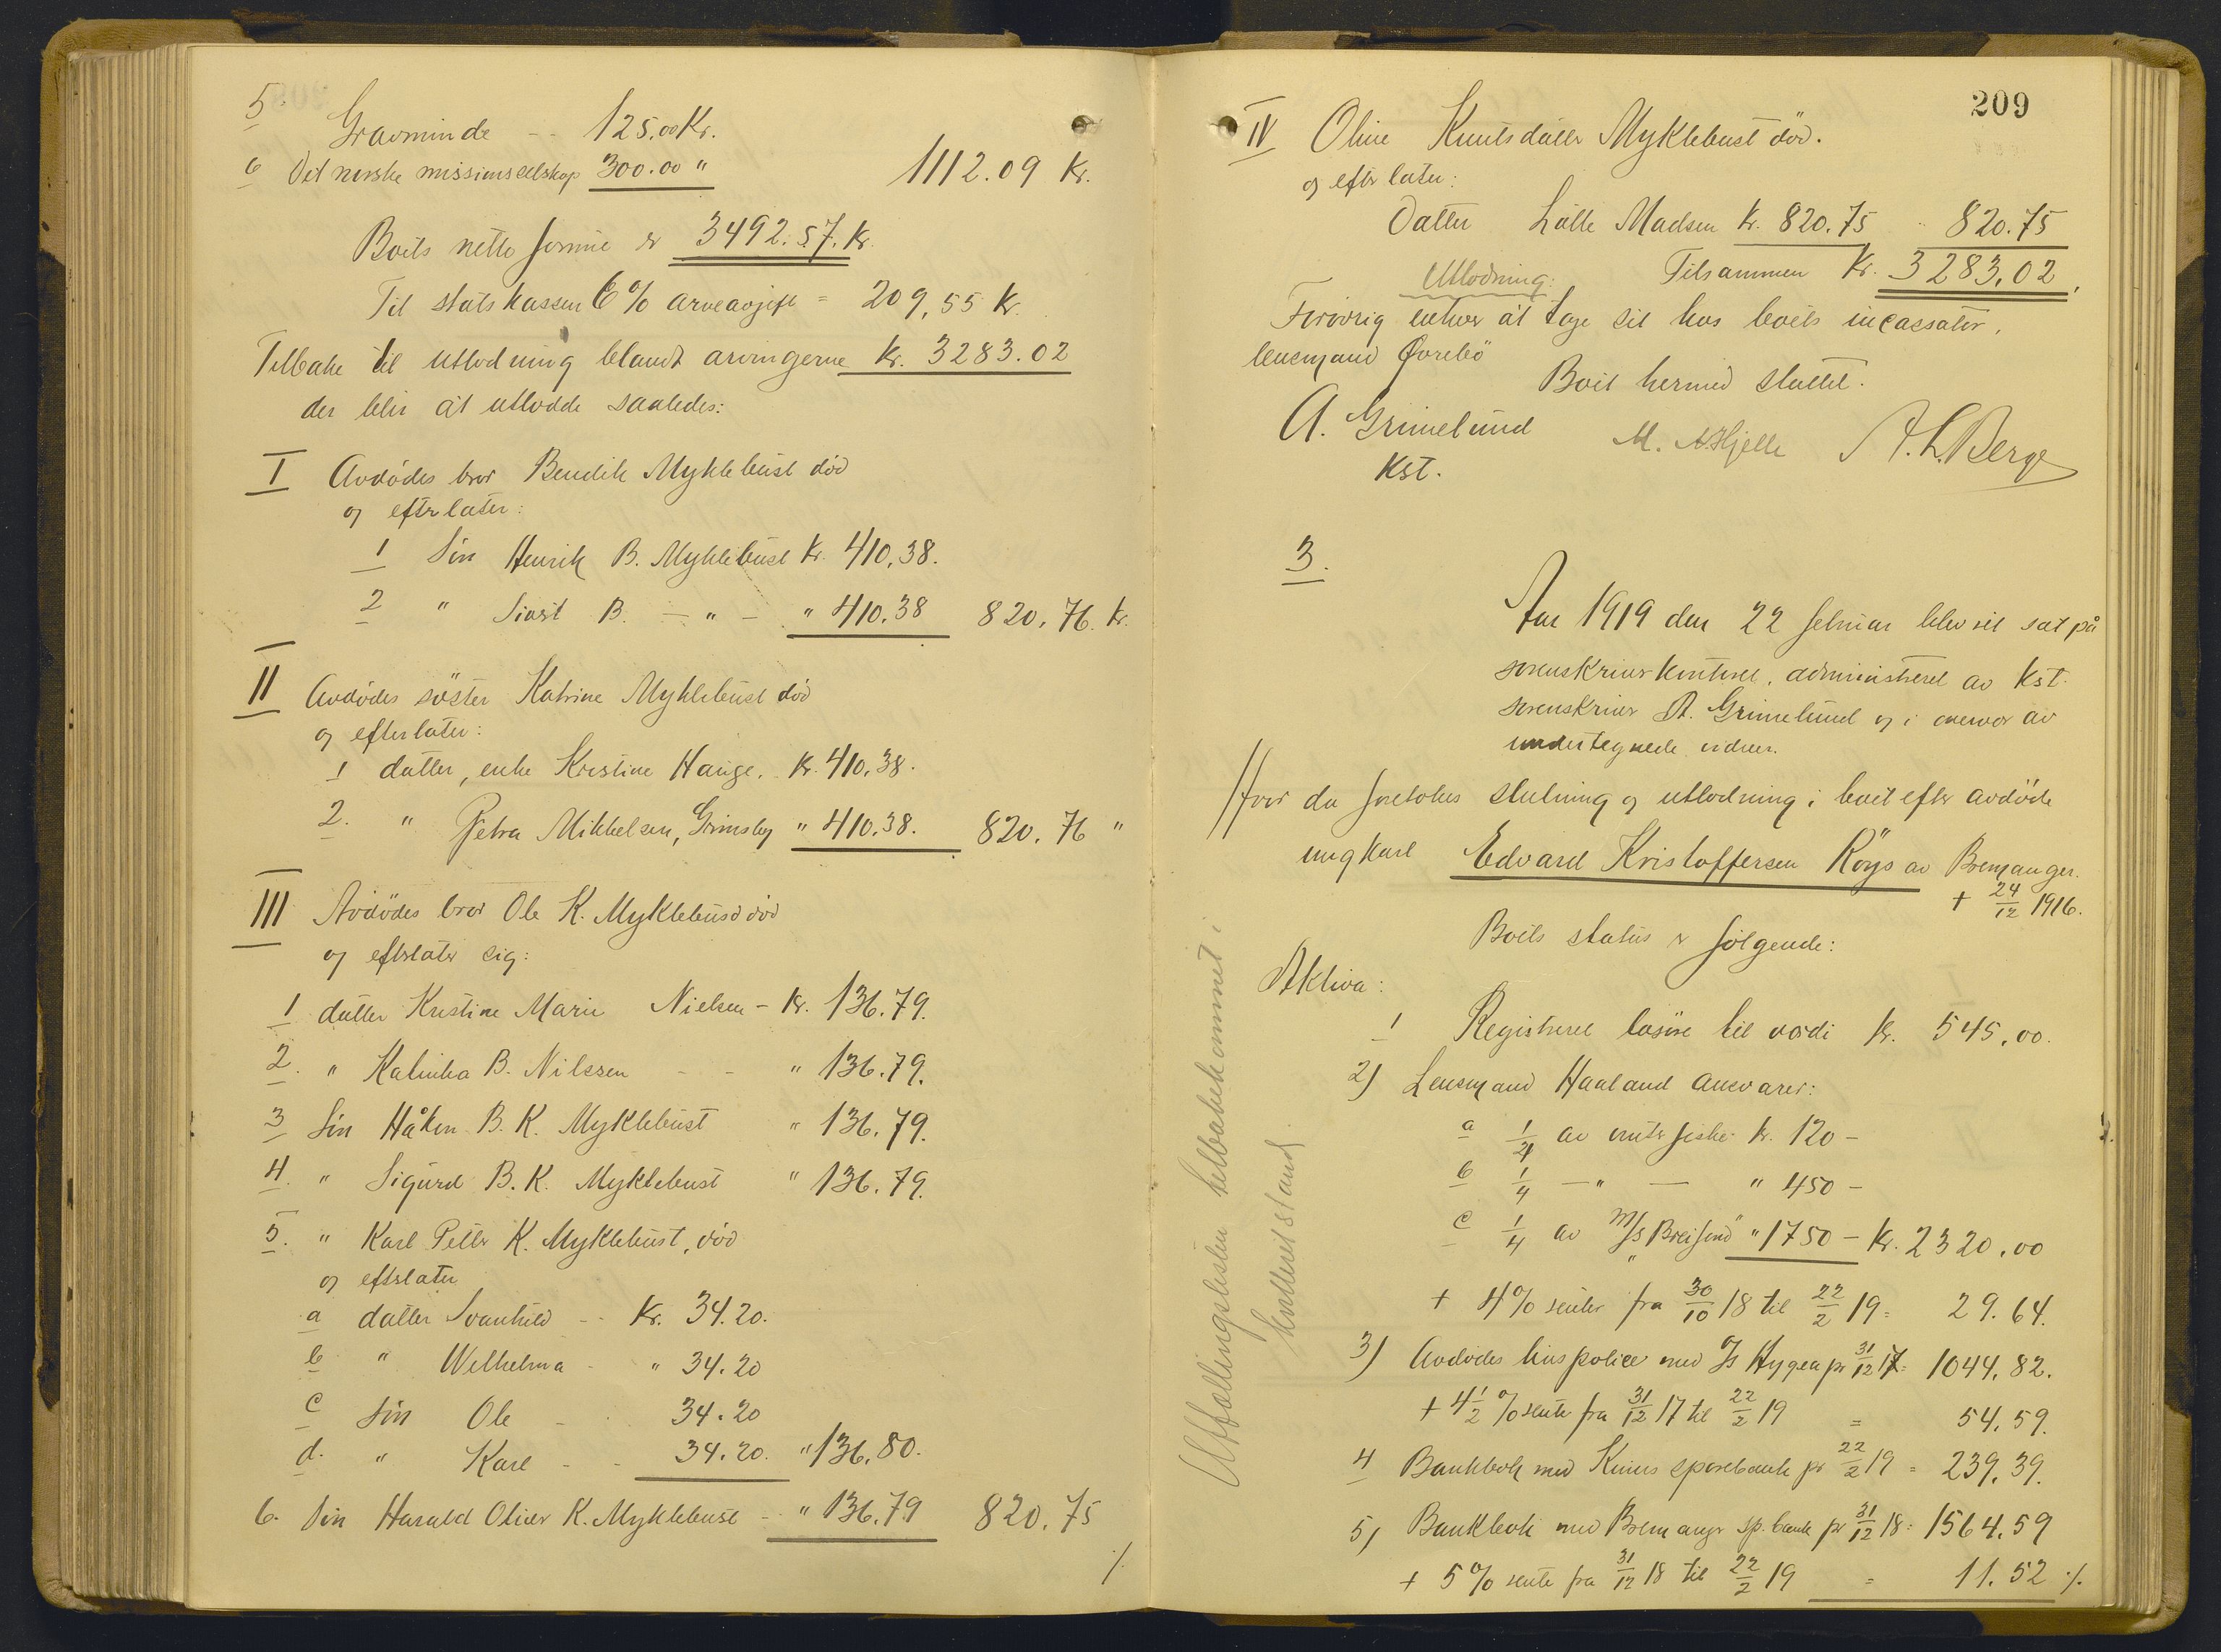 5. Gravminde -- 125.00 Kr.
6 Det norske missionselskap 300.00 " 1112.09 Kr.
Boets netto formue er 3492.57. Kr.
Til statskassen 6 % arveavgift = 209,55 Kr.
Tilbake til utlodning blandt arvingerne Kr. 3283.02
der blir at utlodde saaledes:
I Avdødes bror Bendik Myklebust død
og efterlater:
1 Søn Henrik B. Myklebust Kr. 410,38.
2 " Sivert B. — " — " 410.38 820,76. Kr.
II Avdødes søster Katrine Myklebust død
og efterlater:
1 datter, enke Kristine Hauge. Kr. 410,38.
2. " Petra Mikkelsen, Grimsby " 410.38. 820.76 "
III Avdødes bror Ole K. Myklebust død
og efterlater sig:
1 datter Kristine Marie Nielsen - Kr. 136.79.
2. " Kalinka B. Nilssen - - " 136.79.
3 Søn Håken B. K. Myklebust " 136.79.
4. " Sigurd B. K. Myklebust " 136.79.
5. " Karl Petter K. Myklebust, død
og efterlater
a datter Svanhild -- Kr. 34.20.
b " Welhelma - " 34.20
c søn Ole - 34.20
d. " Karl - - 34.20. " 136.80.
6. Søn Harald Oliver K. Myklebust - " 136.79 820.75
./.
209
IV Oline Knutsdatter Myklebust død.
og efterlater:
Datter Lalle Madsen Kr. 820.75 820.75
Utlodning: Tilsammen Kr. 3283,02.
Forøvrig enhver at tage sit hos boets incassator,
lensmand Øvrebö
Boet hermed sluttet.
A. Grimelund M. N. Hjelle A. L. Berge
Kst.
3.
Aar 1919 den 22 februar blev ret sat på
sorenskriverkontoret, administreret av Kst.
sorenskriver A. Grimelund og i overvær av
undertegnede vidner.
Hvor da foretokes slutning og utlodning i boet efter avdöde
ungkarl Edvard Kristoffersen Röys av Bremanger.
+ 24/12 1916.
Boets status er følgende:
Aktiva:
1 Registreret løsøre til værdi Kr. 545,00.
2) Lensmand Haaland ansvarer:
a 1/4 av vinterfiske Kr. 120 -
b 1/4 — " — " 450 -
c 1/4 av M/S "Breisund" " 1750 - Kr. 2320.00
+ 4% renter fra 30/10 18 til 22/2 19 = 29.64.
3) Avdødes livspolice med A/S Hygea pr 31/12 17 = 1044,82.
+ 4 1/2 % rente fra 31/12 17 til 22/2 19 = 54.59.
4 Bankbok med Kinns sparebank pr 22/2 19 = 239.39.
5) Bankbok med Bremanger sp. bank pr 31/12 18 = 1564.59
+ 5 % rente fra 31/12 18 til 22/2 19 = 11.52 ./.
Utfællingslisten tilbakekommet i
kvitteret stand.